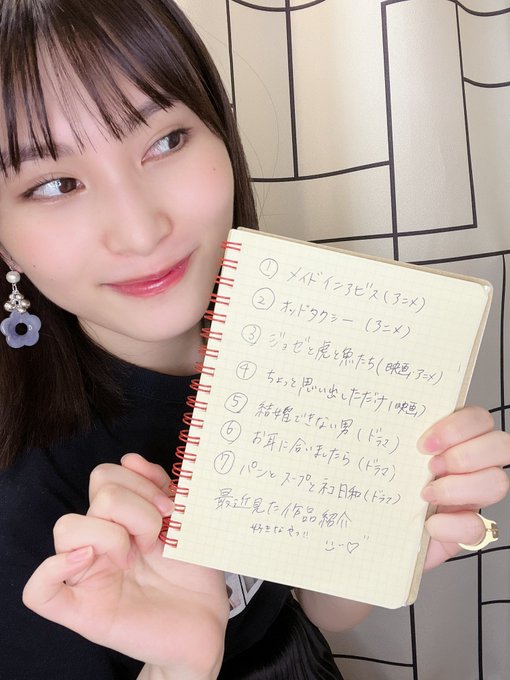 ① メイドインアビス(アニメ)
② オッドタクシー(アニメ)
③ ジョゼと虎と魚たち(映画,アニメ)
④ ちょっと思い出しただけ(映画)
⑤ 結婚できない男(ドラマ)
⑥ お耳に合いましたら(ドラマ)
⑦ パンとスープとネコ日和(ドラマ)
最近見た作品紹介
好きなやつ!!